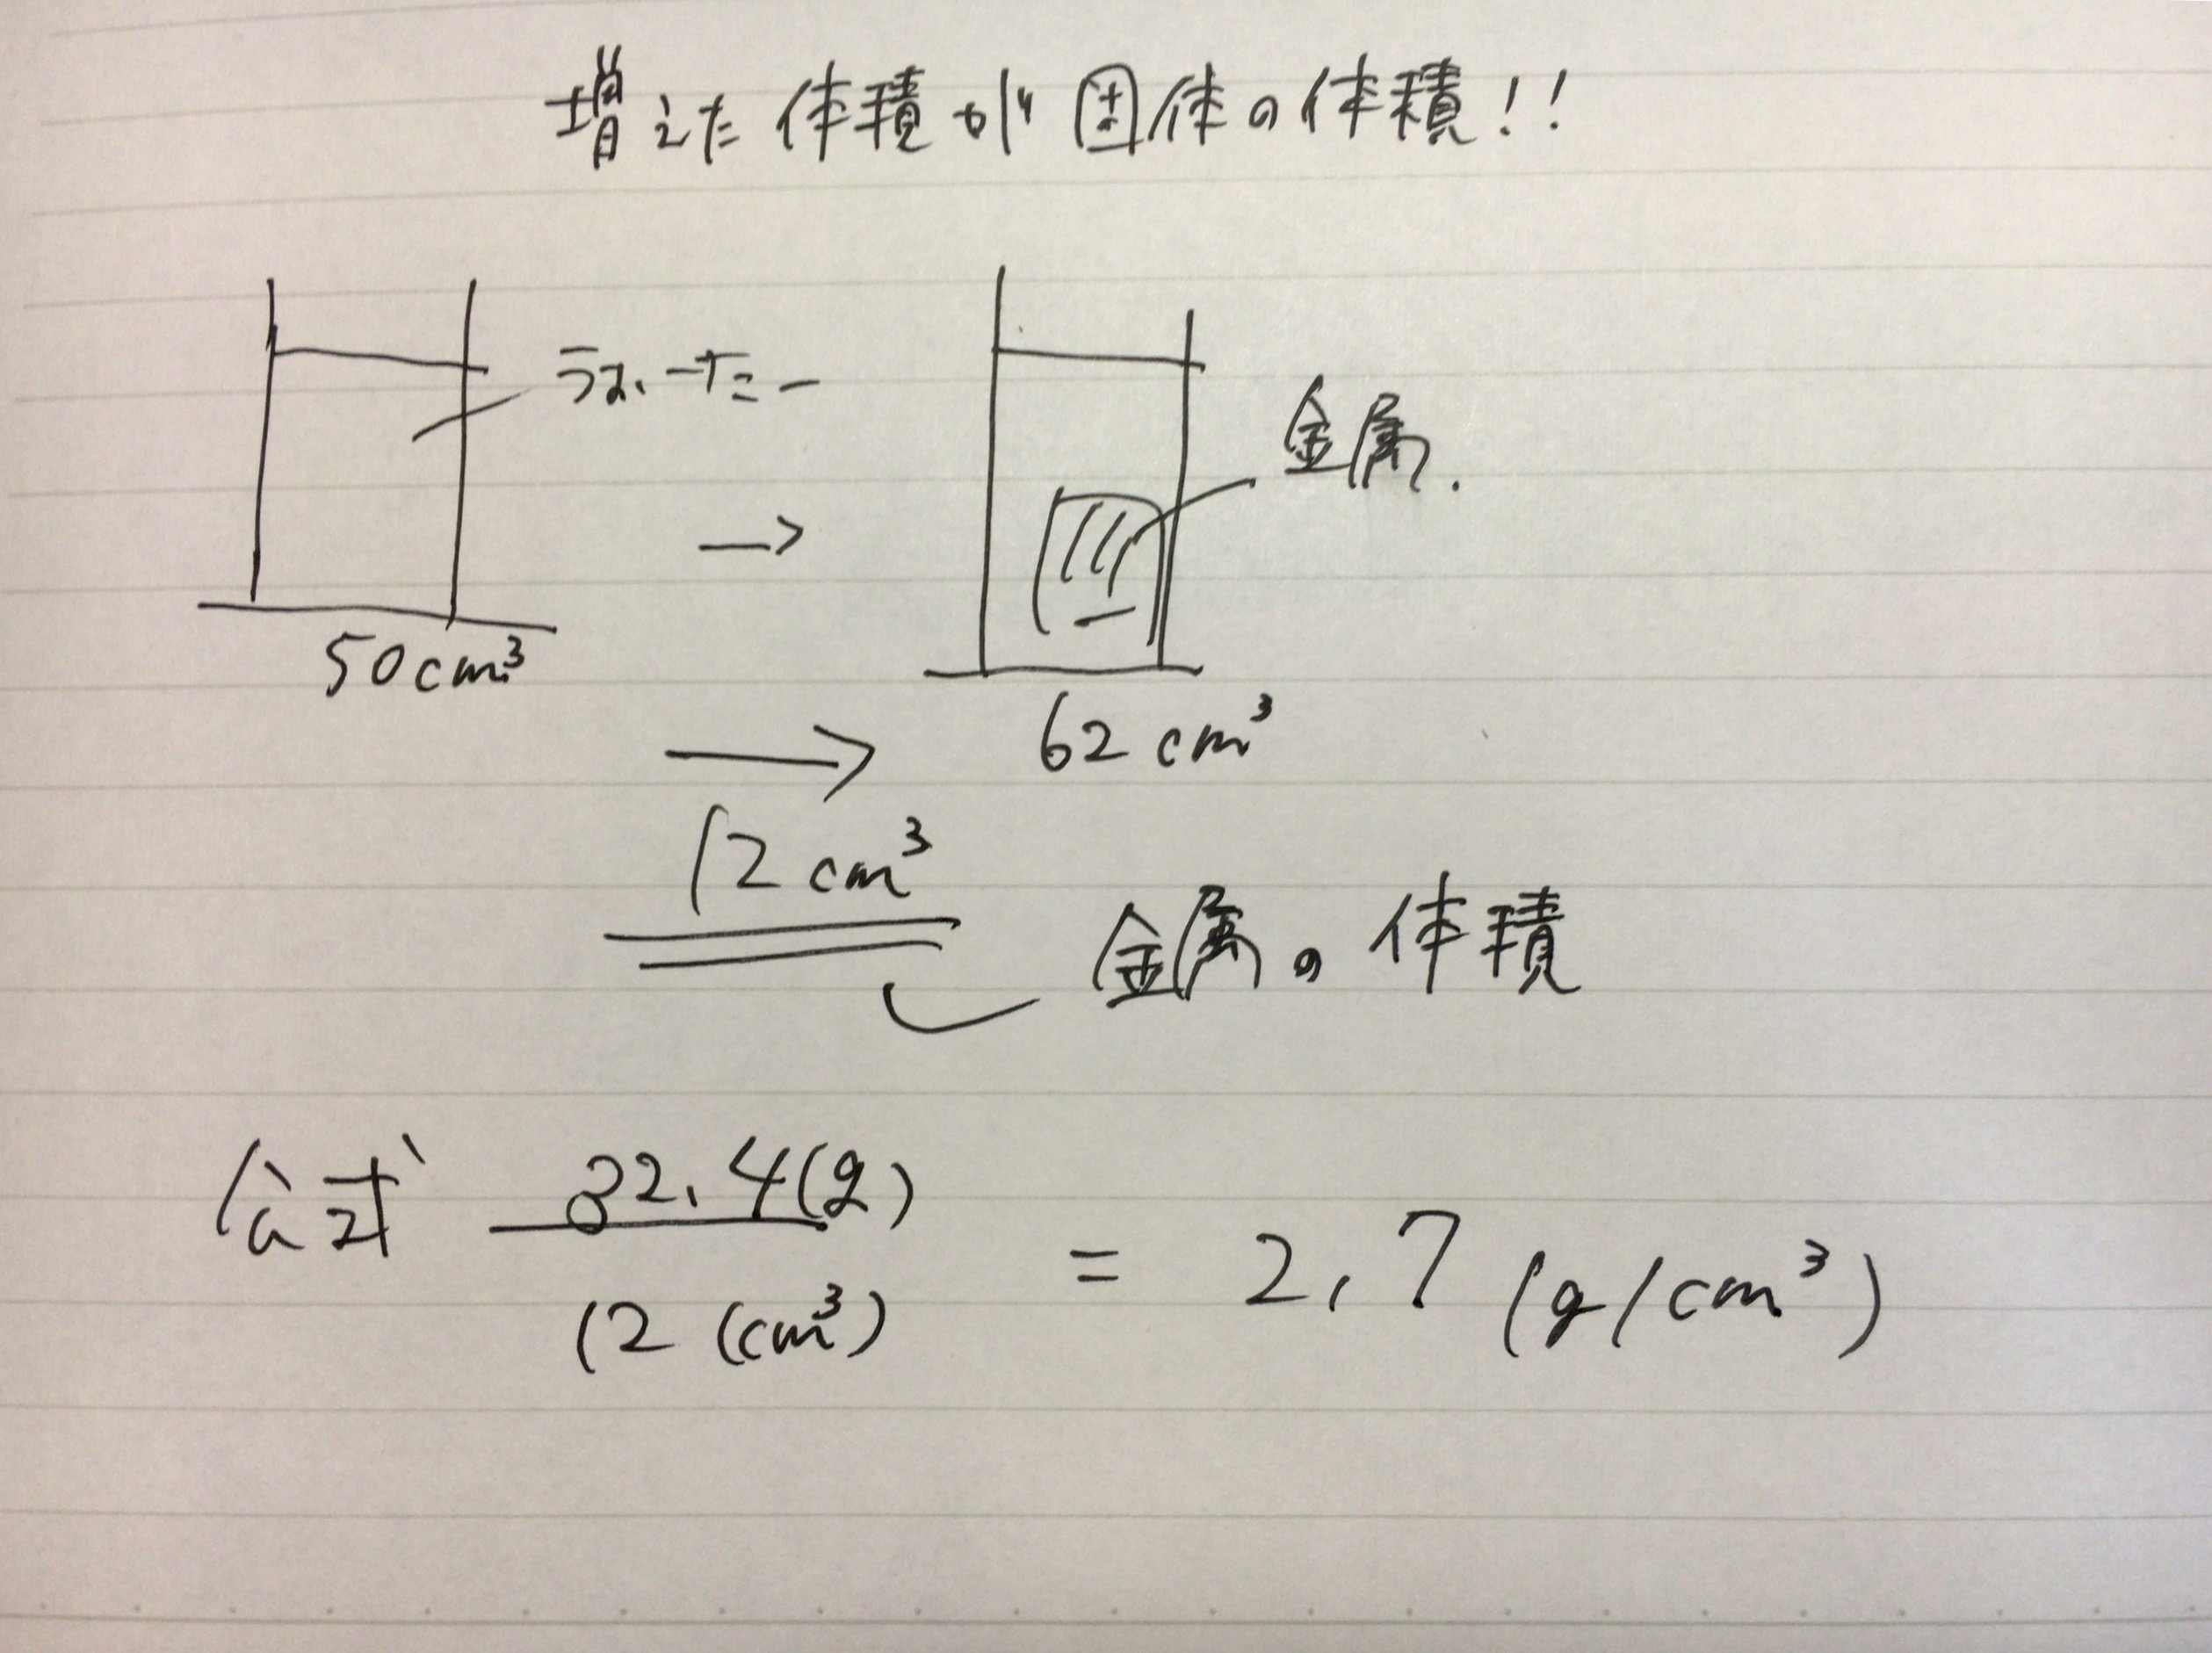 増えた体積が固体の体積!!
金属.
→
50cm³
62 cm³
→
12 cm³
金属の体積
公式 32.4(g) / 12 (cm³) = 2.7 (g/cm³)